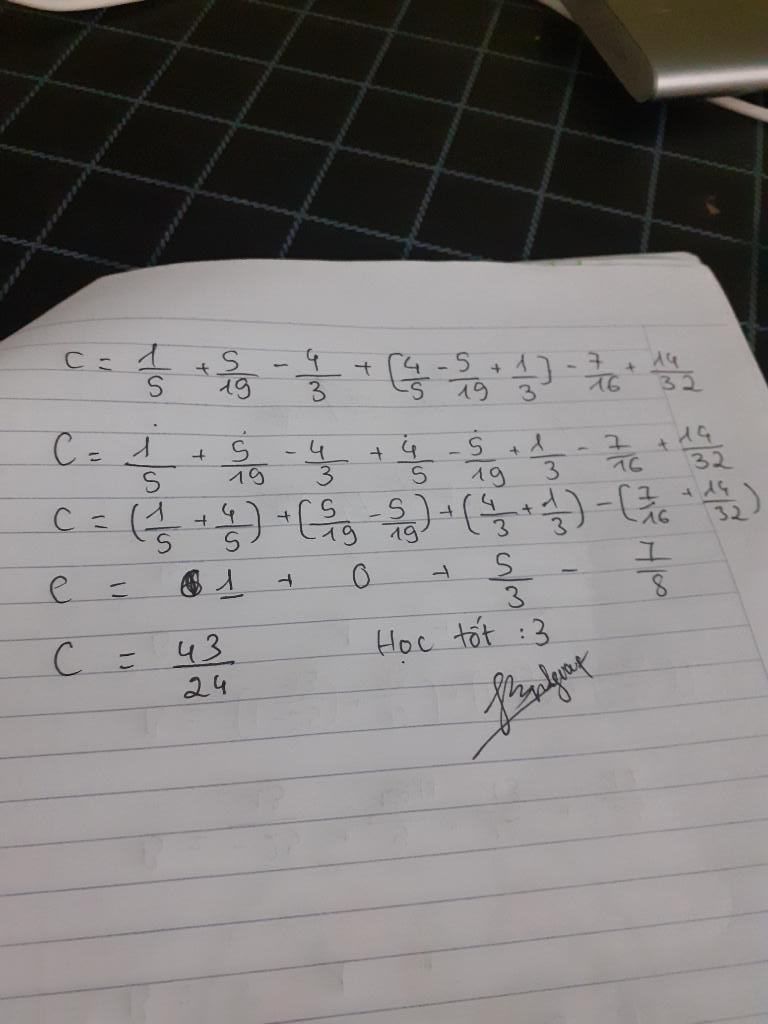 C = 1/5 + 5/19 - 4/3 + [4/5 - 5/19 + 1/3] - 7/16 + 14/32
C = 1/5 + 5/19 - 4/3 + 4/5 - 5/19 + 1/3 - 7/16 + 14/32
C = (1/5 + 4/5) + (5/19 - 5/19) + (4/3 + 1/3) - (7/16 + 14/32)
C = 1 + 0 + 5/3 - 7/8
C = 43/24 Học tốt :3